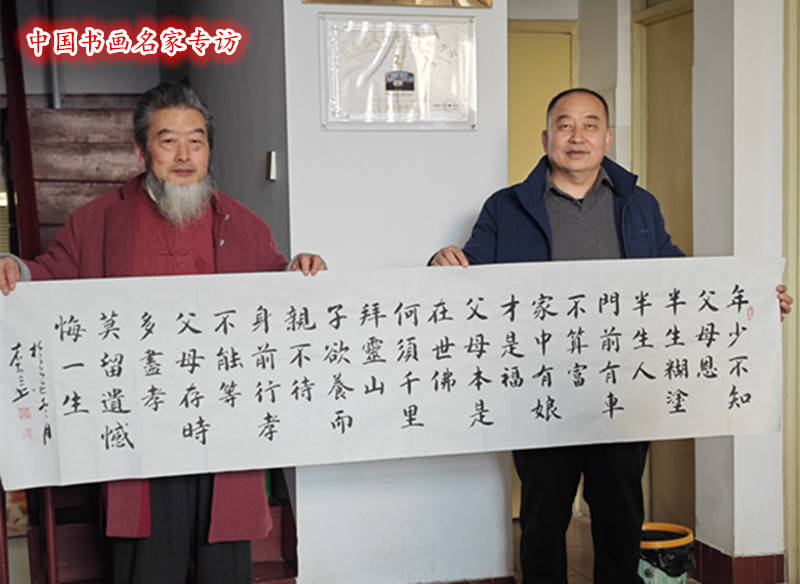 中国书画名家专访
年少不知
父母恩
半生糊塗
半生人
門前有車
不算富
家中有娘
才是福
父母本是
在世佛
何須千里
拜靈山
子欲養而
親不待
身前行孝
不能等
父母存時
多盡孝
莫留遺憾
悔一生